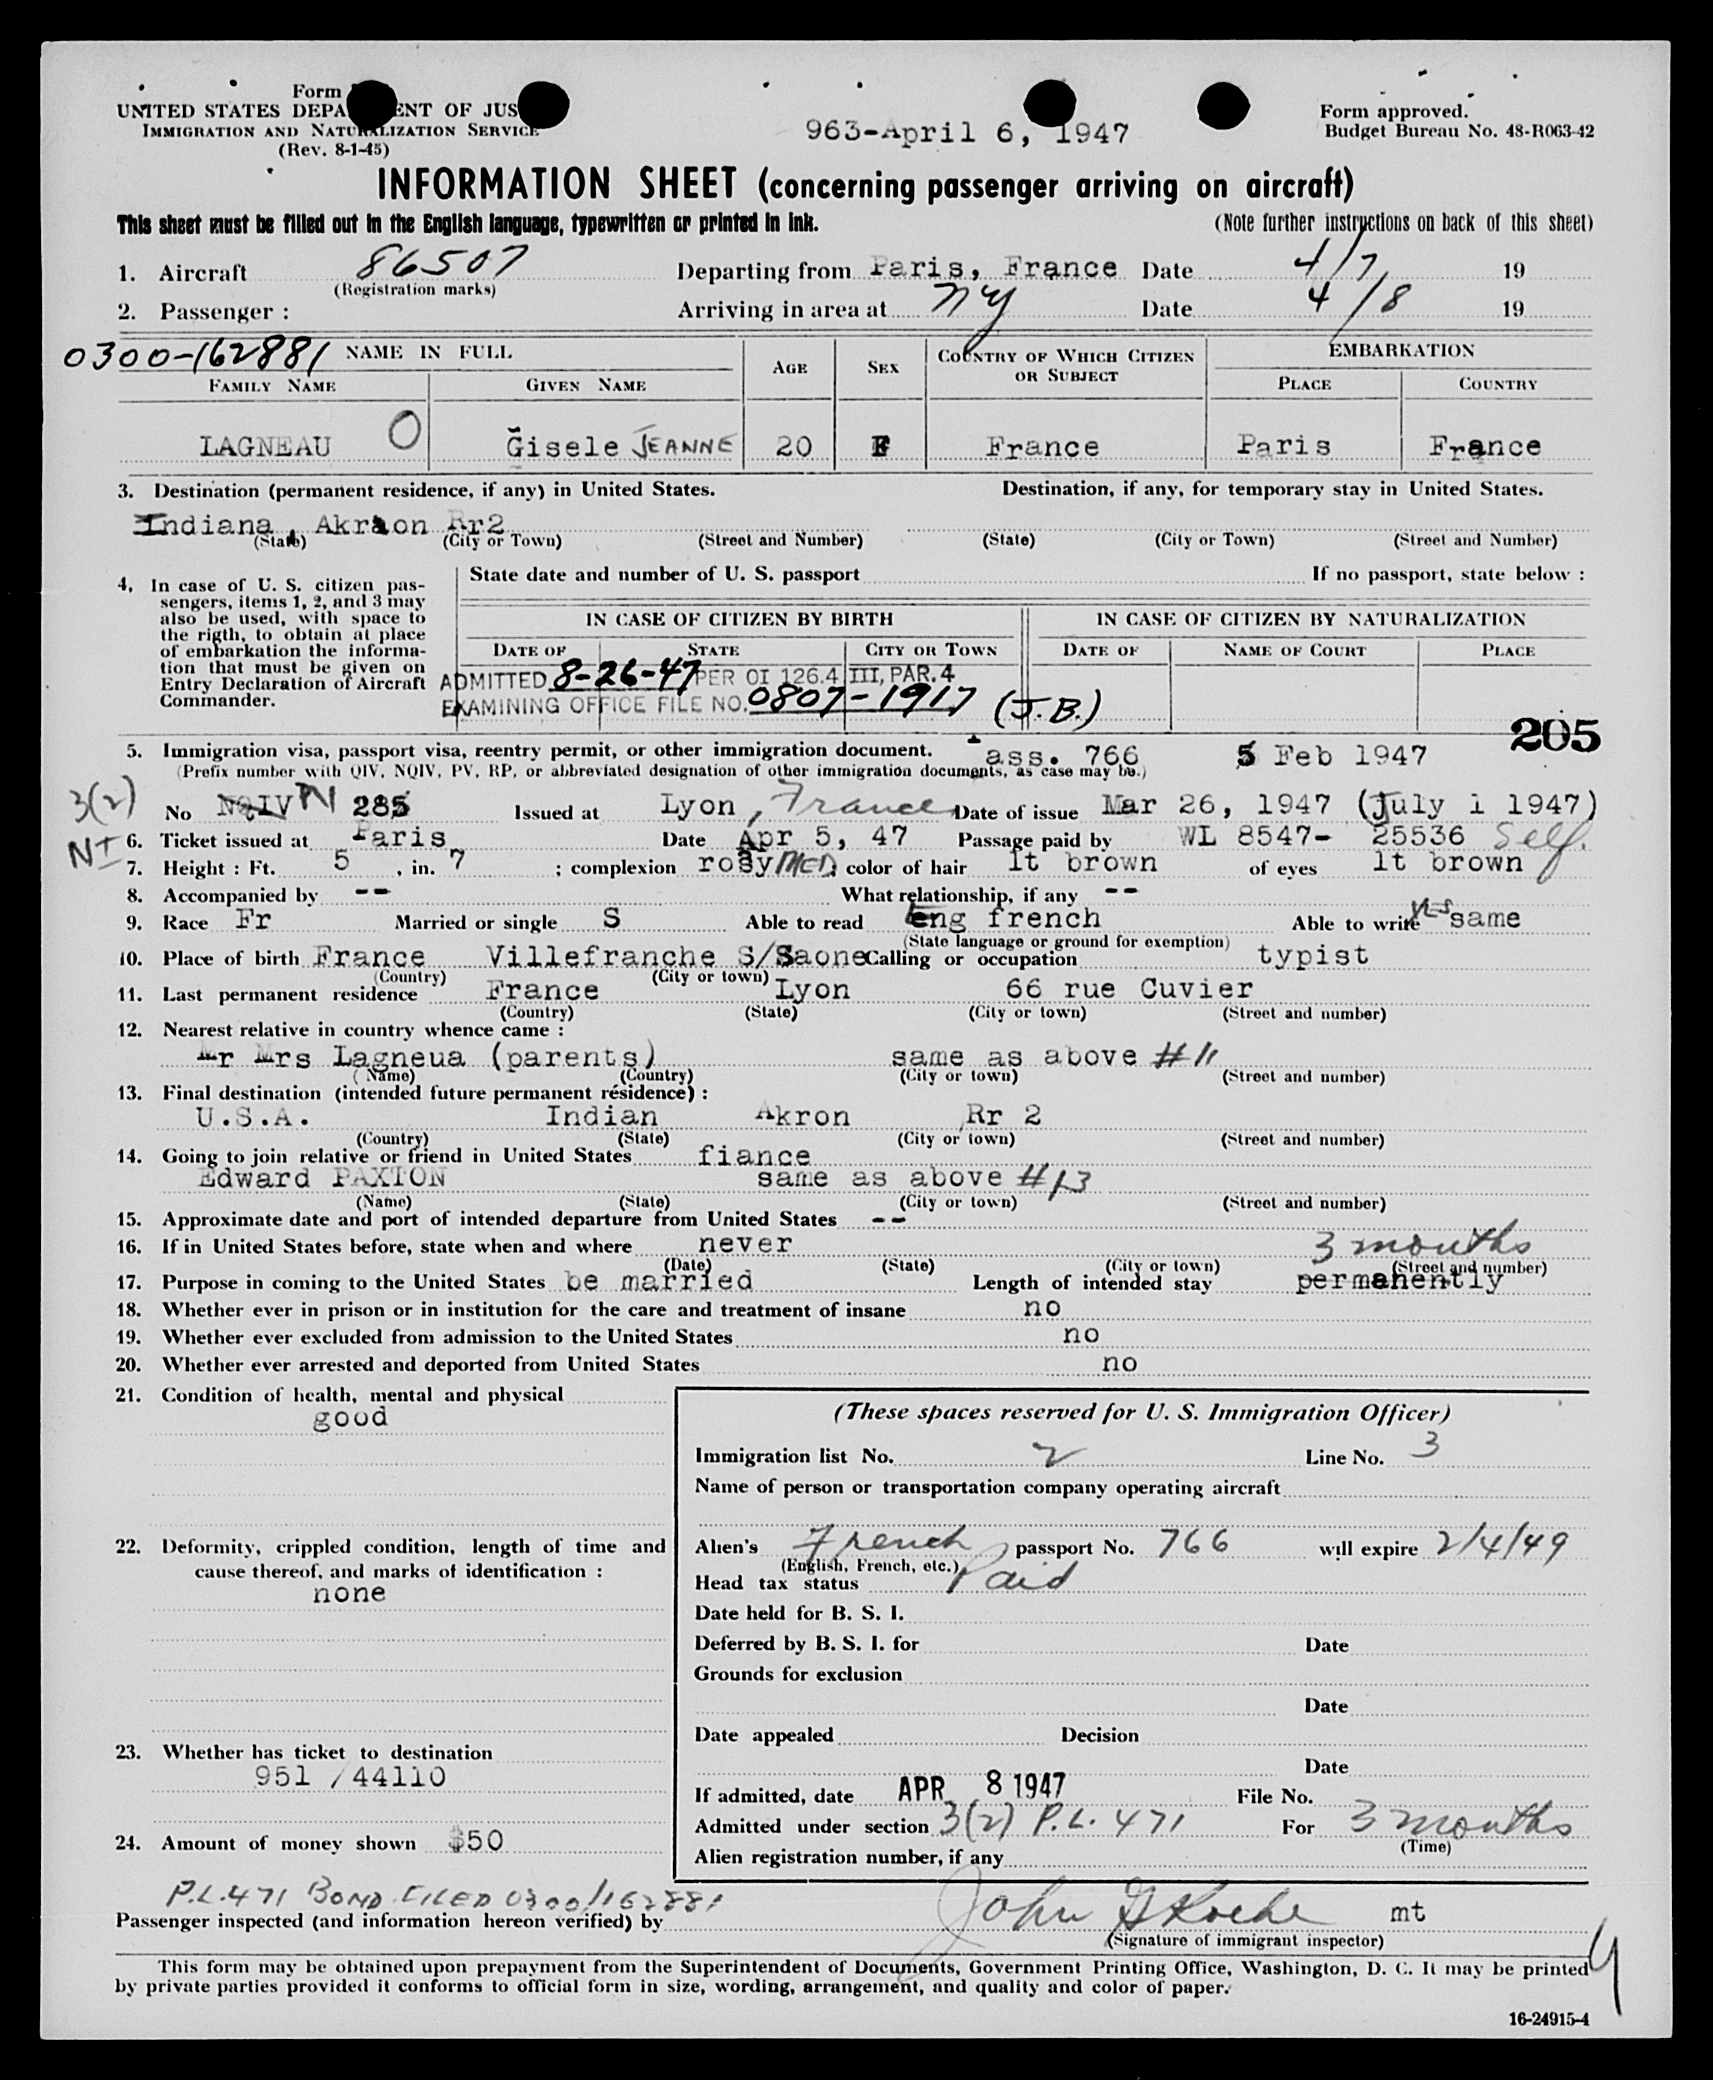 Form
UNITED STATES DEPA ENT OF JUS
IMMIGRATION AND NATURALIZATION SERVICE
(Rev. 8-1-45)
963-April 6, 1947
Form approved.
Budget Bureau No. 48-R063-42
INFORMATION SHEET (concerning passenger arriving on aircraft)
This sheet must be filled out in the English language, typewritten or printed in ink.
(Note further instructions on back of this sheet)
1. Aircraft 86507 Departing from Paris, France Date 4/7 19
(Registration marks)
2. Passenger : Arriving in area at NY Date 4/8 19
0300-162881 NAME IN FULL AGE SEX COUNTRY OF WHICH CITIZEN OR SUBJECT EMBARKATION
FAMILY NAME GIVEN NAME PLACE COUNTRY
LAGNEAU O Gisele JEANNE 20 F France Paris France
3. Destination (permanent residence, if any) in United States. Destination, if any, for temporary stay in United States.
Indiana, Akraon Rr2
(State) (City or Town) (Street and Number) (State) (City or Town) (Street and Number)
4, In case of U. S. citizen pas-
sengers, items 1, 2, and 3 may
also be used, with space to
the rigth, to obtain at place
of embarkation the informa-
tion that must be given on
Entry Declaration of Aircraft
Commander.
State date and number of U. S. passport If no passport, state below :
IN CASE OF CITIZEN BY BIRTH IN CASE OF CITIZEN BY NATURALIZATION
DATE OF STATE CITY OR TOWN DATE OF NAME OF COURT PLACE
ADMITTED 8-26-47 PER OI 126.4 III, PAR. 4
EXAMINING OFFICE FILE NO. 0807-1917 (J.B.)
205
5. Immigration visa, passport visa, reentry permit, or other immigration document. Pass. 766 5 Feb 1947
(Prefix number with QIV, NQIV, PV, RP, or abbreviated designation of other immigration documents, as case may be.)
3(2) No NQIV PV 285 Issued at Lyon, France Date of issue Mar 26, 1947 (July 1 1947)
NI 6. Ticket issued at Paris Date Apr 5, 47 Passage paid by WL 8547- 25536 Self.
7. Height : Ft. 5 , in. 7 ; complexion rosy MED; color of hair lt brown of eyes lt brown
8. Accompanied by -- What relationship, if any --
9. Race Fr Married or single S Able to read eng french Able to write YES same
(State language or ground for exemption)
10. Place of birth France Villefranche S/Saone Calling or occupation typist
(Country) (City or town)
11. Last permanent residence France Lyon 66 rue Cuvier
(Country) (State) (City or town) (Street and number)
12. Nearest relative in country whence came :
Mr Mrs Lagneua (parents) same as above #11
(Name) (Country) (City or town) (Street and number)
13. Final destination (intended future permanent résidence) :
U.S.A. Indian Akron Rr 2
(Country) (State) (City or town) (Street and number)
14. Going to join relative or friend in United States fiance
Edward PAXTON same as above #13
(Name) (State) (City or town) (Street and number)
15. Approximate date and port of intended departure from United States --
16. If in United States before, state when and where never 3 months
(Date) (State) (City or town) (Street and number)
17. Purpose in coming to the United States be married Length of intended stay permanently
18. Whether ever in prison or in institution for the care and treatment of insane no
19. Whether ever excluded from admission to the United States no
20. Whether ever arrested and deported from United States no
21. Condition of health, mental and physical
good
22. Deformity, crippled condition, length of time and
cause thereof, and marks of identification :
none
23. Whether has ticket to destination
951 /44110
24. Amount of money shown $50
(These spaces reserved for U. S. Immigration Officer)
Immigration list No. 2 Line No. 3
Name of person or transportation company operating aircraft
Alien's French passport No. 766 will expire 2/4/49
(English, French, etc.)
Head tax status Paid
Date held for B. S. I.
Deferred by B. S. I. for Date
Grounds for exclusion
Date
Date appealed Decision
Date
If admitted, date APR 8 1947 File No.
Admitted under section 3(2) P.L. 471 For 3 months
(Time)
Alien registration number, if any
P.L. 471 BOND FILED 0300/162881
Passenger inspected (and information hereon verified) by John G Koche mt
(Signature of immigrant inspector)
This form may be obtained upon prepayment from the Superintendent of Documents, Government Printing Office, Washington, D. C. It may be printed
by private parties provided it conforms to official form in size, wording, arrangement, and quality and color of paper.
16-24915-4